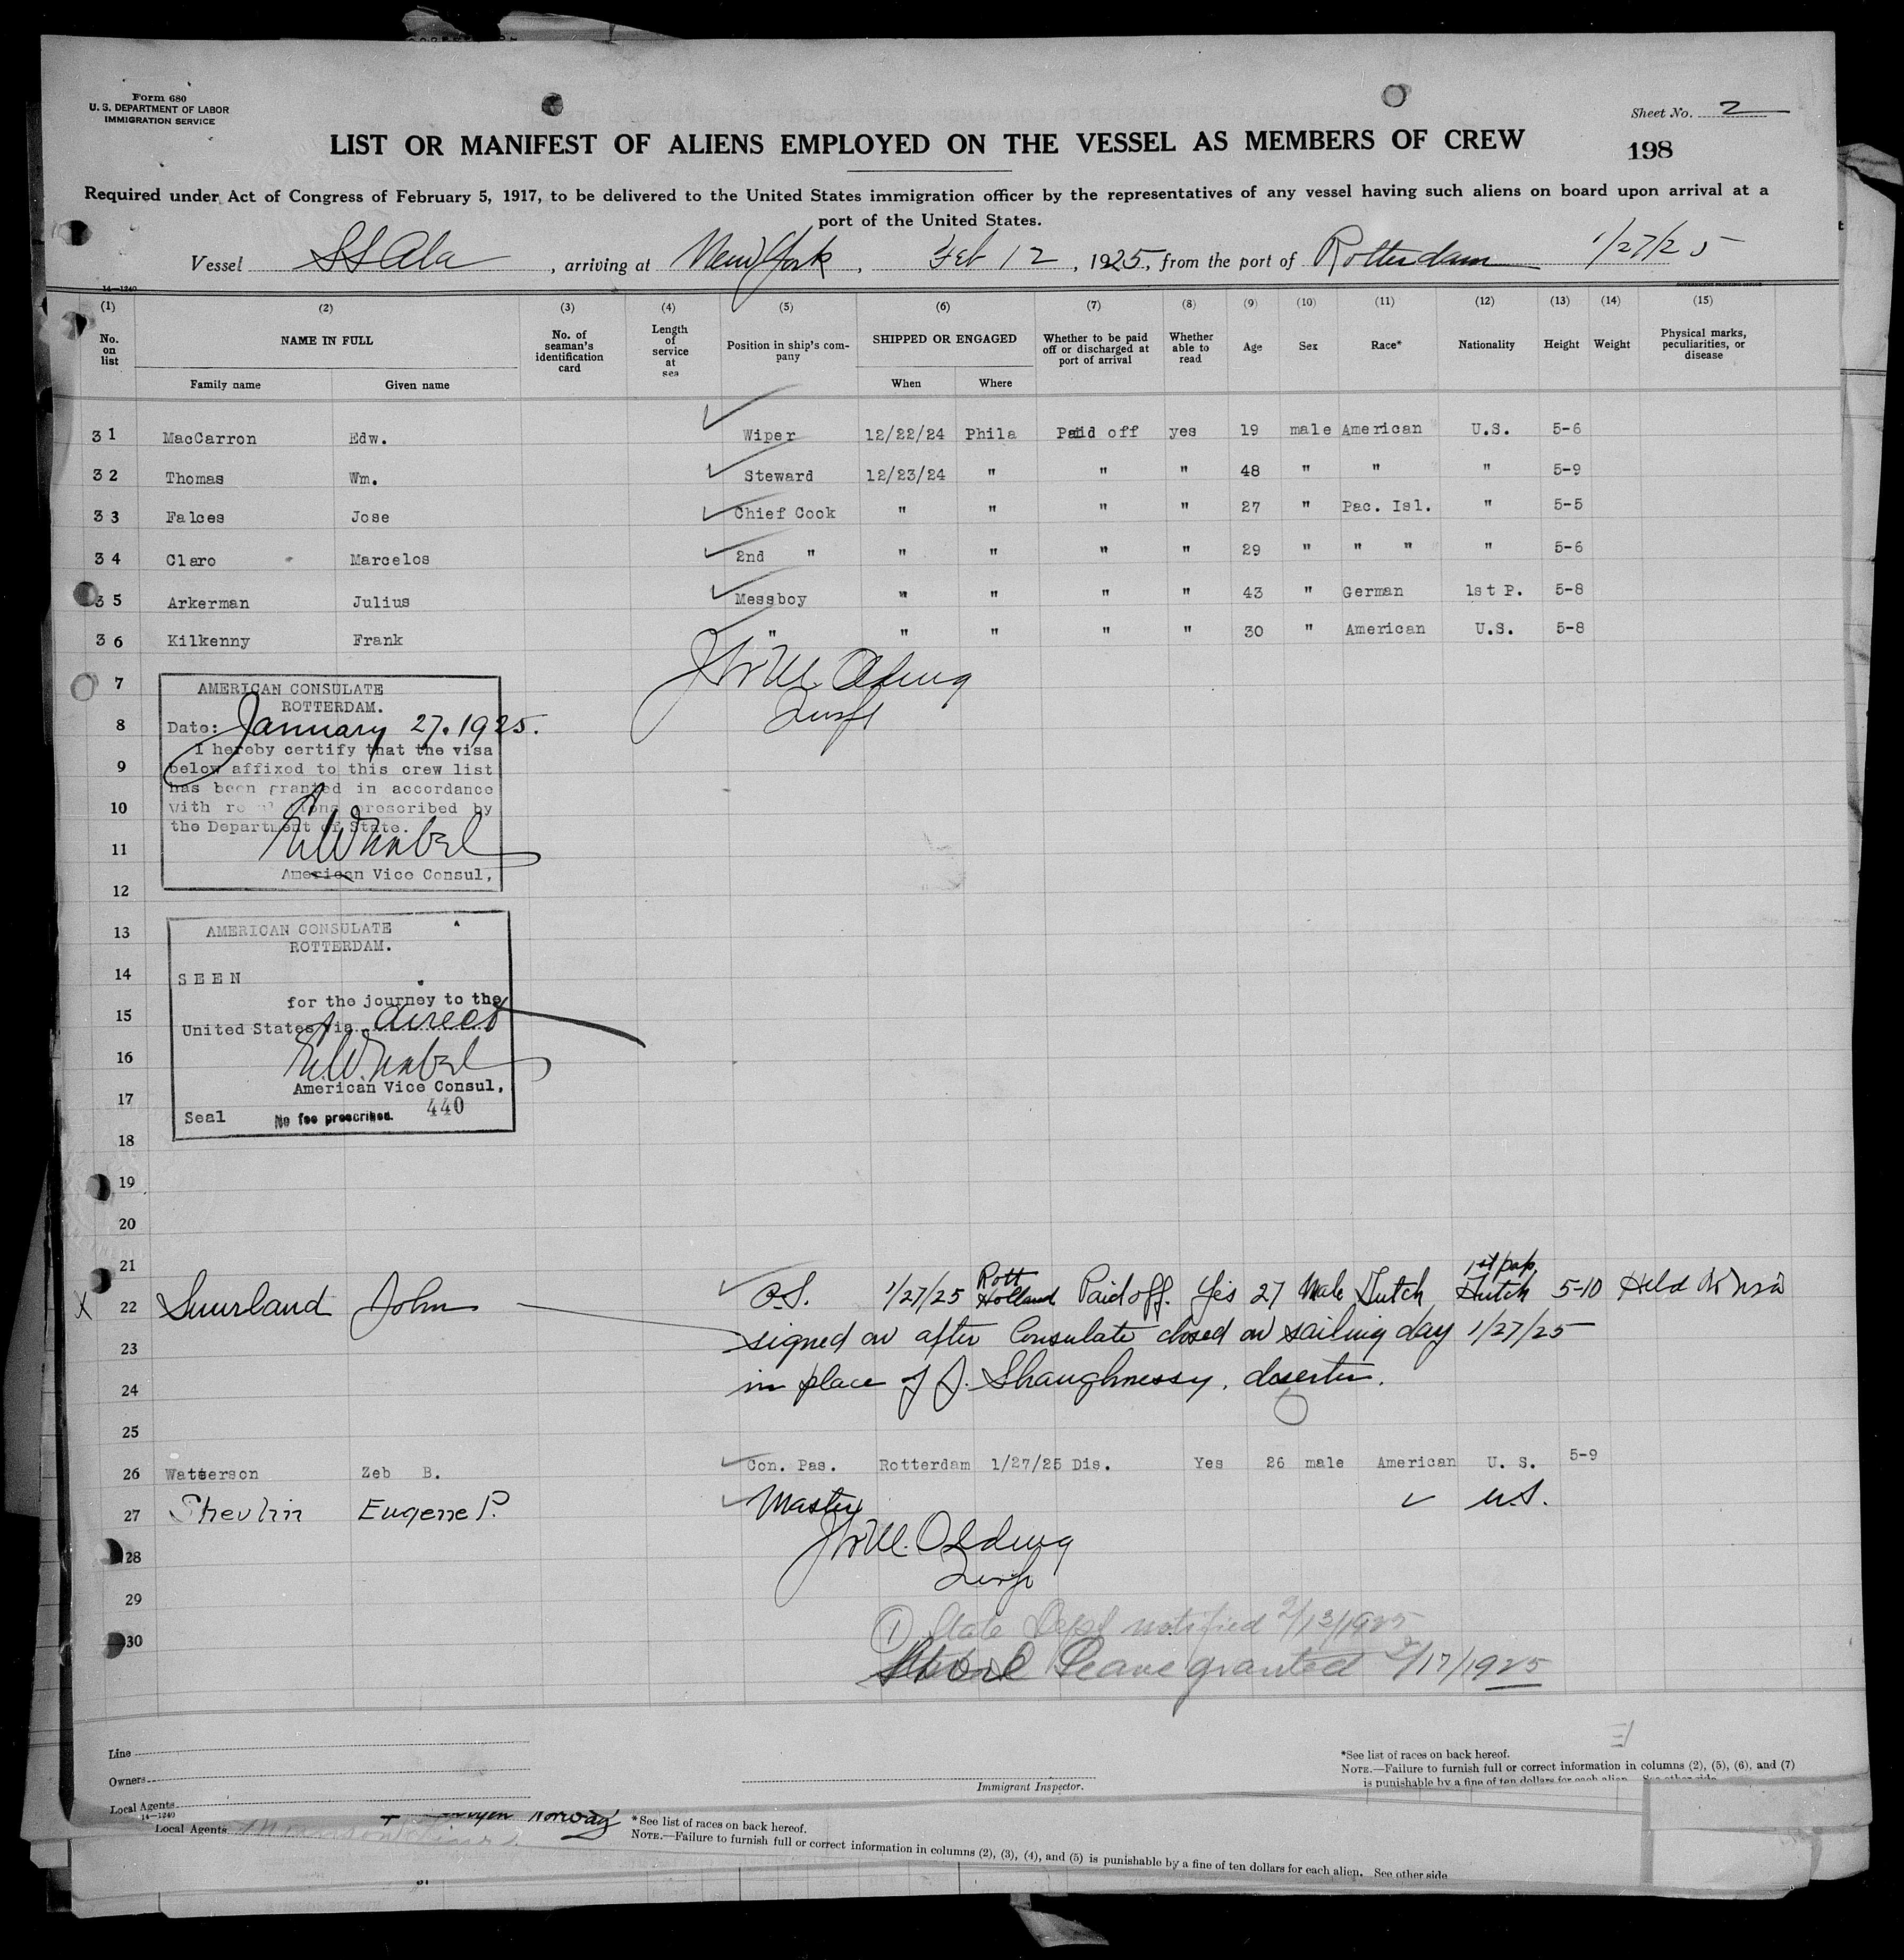 Form 680
U. S. DEPARTMENT OF LABOR
IMMIGRATION SERVICE
Sheet No. 2
LIST OR MANIFEST OF ALIENS EMPLOYED ON THE VESSEL AS MEMBERS OF CREW
198
Required under Act of Congress of February 5, 1917, to be delivered to the United States immigration officer by the representatives of any vessel having such aliens on board upon arrival at a
port of the United States.
Vessel SS Ala, arriving at New York, Feb 12, 1925, from the port of Rotterdam 1/27/25
14—1240
(1) (2) (3) (4) (5) (6) (7) (8) (9) (10) (11) (12) (13) (14) (15)
No. on list NAME IN FULL No. of seaman's identification card Length of service at sea Position in ship's company SHIPPED OR ENGAGED Whether to be paid off or discharged at port of arrival Whether able to read Age Sex Race* Nationality Height Weight Physical marks, peculiarities, or disease
Family name Given name When Where
31 MacCarron Edw. Wiper 12/22/24 Phila Paid off yes 19 male American U.S. 5-6
32 Thomas Wm. Steward 12/23/24 " " " 48 " " " 5-9
33 Falces Jose Chief Cook " " " " 27 " Pac. Isl. " 5-5
34 Claro Marcelos 2nd " " " " " 29 " " " " 5-6
35 Arkerman Julius Messboy " " " " 43 " German 1st P. 5-8
36 Kilkenny Frank " " " " " 30 " American U.S. 5-8
7
AMERICAN CONSULATE
ROTTERDAM.
8
Date: January 27. 1925.
I hereby certify that the visa
9
below affixed to this crew list
has been granted in accordance
10
with regulations prescribed by
the Department of State.
11
American Vice Consul,
12
13
AMERICAN CONSULATE
ROTTERDAM.
14
SEEN
for the journey to the
15
United States via direct
16
American Vice Consul,
17
Seal No fee prescribed. 440
18
19
20
21
X 22 Suurland John O.S. 1/27/25 Rott Holland Paid off. Yes 27 Male Dutch 1st pap. Dutch 5-10 Held
23 signed on after Consulate closed on sailing day 1/27/25
24 in place of J. Shaughnessy, deserter.
25
26 Watterson Zeb B. Con. Pas. Rotterdam 1/27/25 Dis. Yes 26 male American U. S. 5-9
27 Shevlin Eugene P. Master U.S.
28
29
1 State Dept notified 2/13/1925
30
Shore Leave granted 2/17/1925
Line
Owners
Local Agents
14—1240
Immigrant Inspector.
*See list of races on back hereof.
NOTE.—Failure to furnish full or correct information in columns (2), (5), (6), and (7)
is punishable by a fine of ten dollars for each alien. See other side
Norway
Local Agents
*See list of races on back hereof.
NOTE.—Failure to furnish full or correct information in columns (2), (3), (4), and (5) is punishable by a fine of ten dollars for each alien. See other side